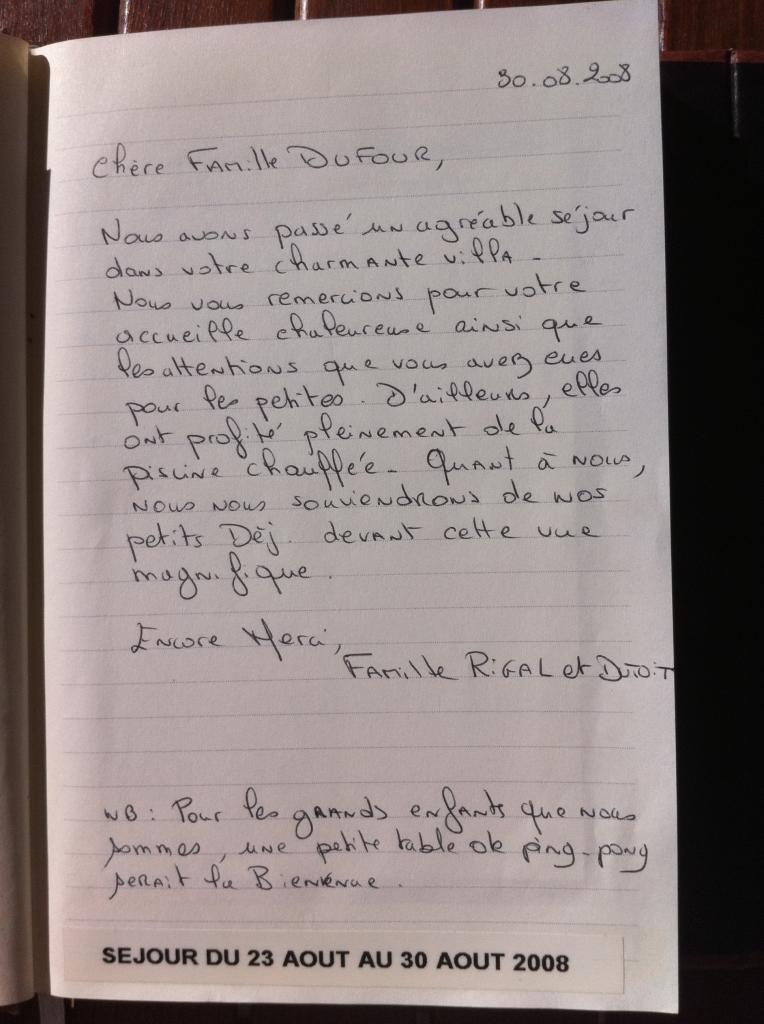 30.08.2008
Chère Famille DUFOUR,
Nous avons passé un agréable séjour
dans votre charmante villa.
Nous vous remercions pour votre
accueille chaleureuse ainsi que
les attentions que vous avez eues
pour les petites. D'ailleurs, elles
ont profité pleinement de la
piscine chauffée. Quant à nous,
nous nous souviendrons de nos
petits Déj. devant cette vue
magnifique.
Encore Merci,
Famille RIGAL et DUTOIT
NB : Pour les grands enfants que nous
sommes, une petite table de ping-pong
serait la Bienvenue.
SEJOUR DU 23 AOUT AU 30 AOUT 2008